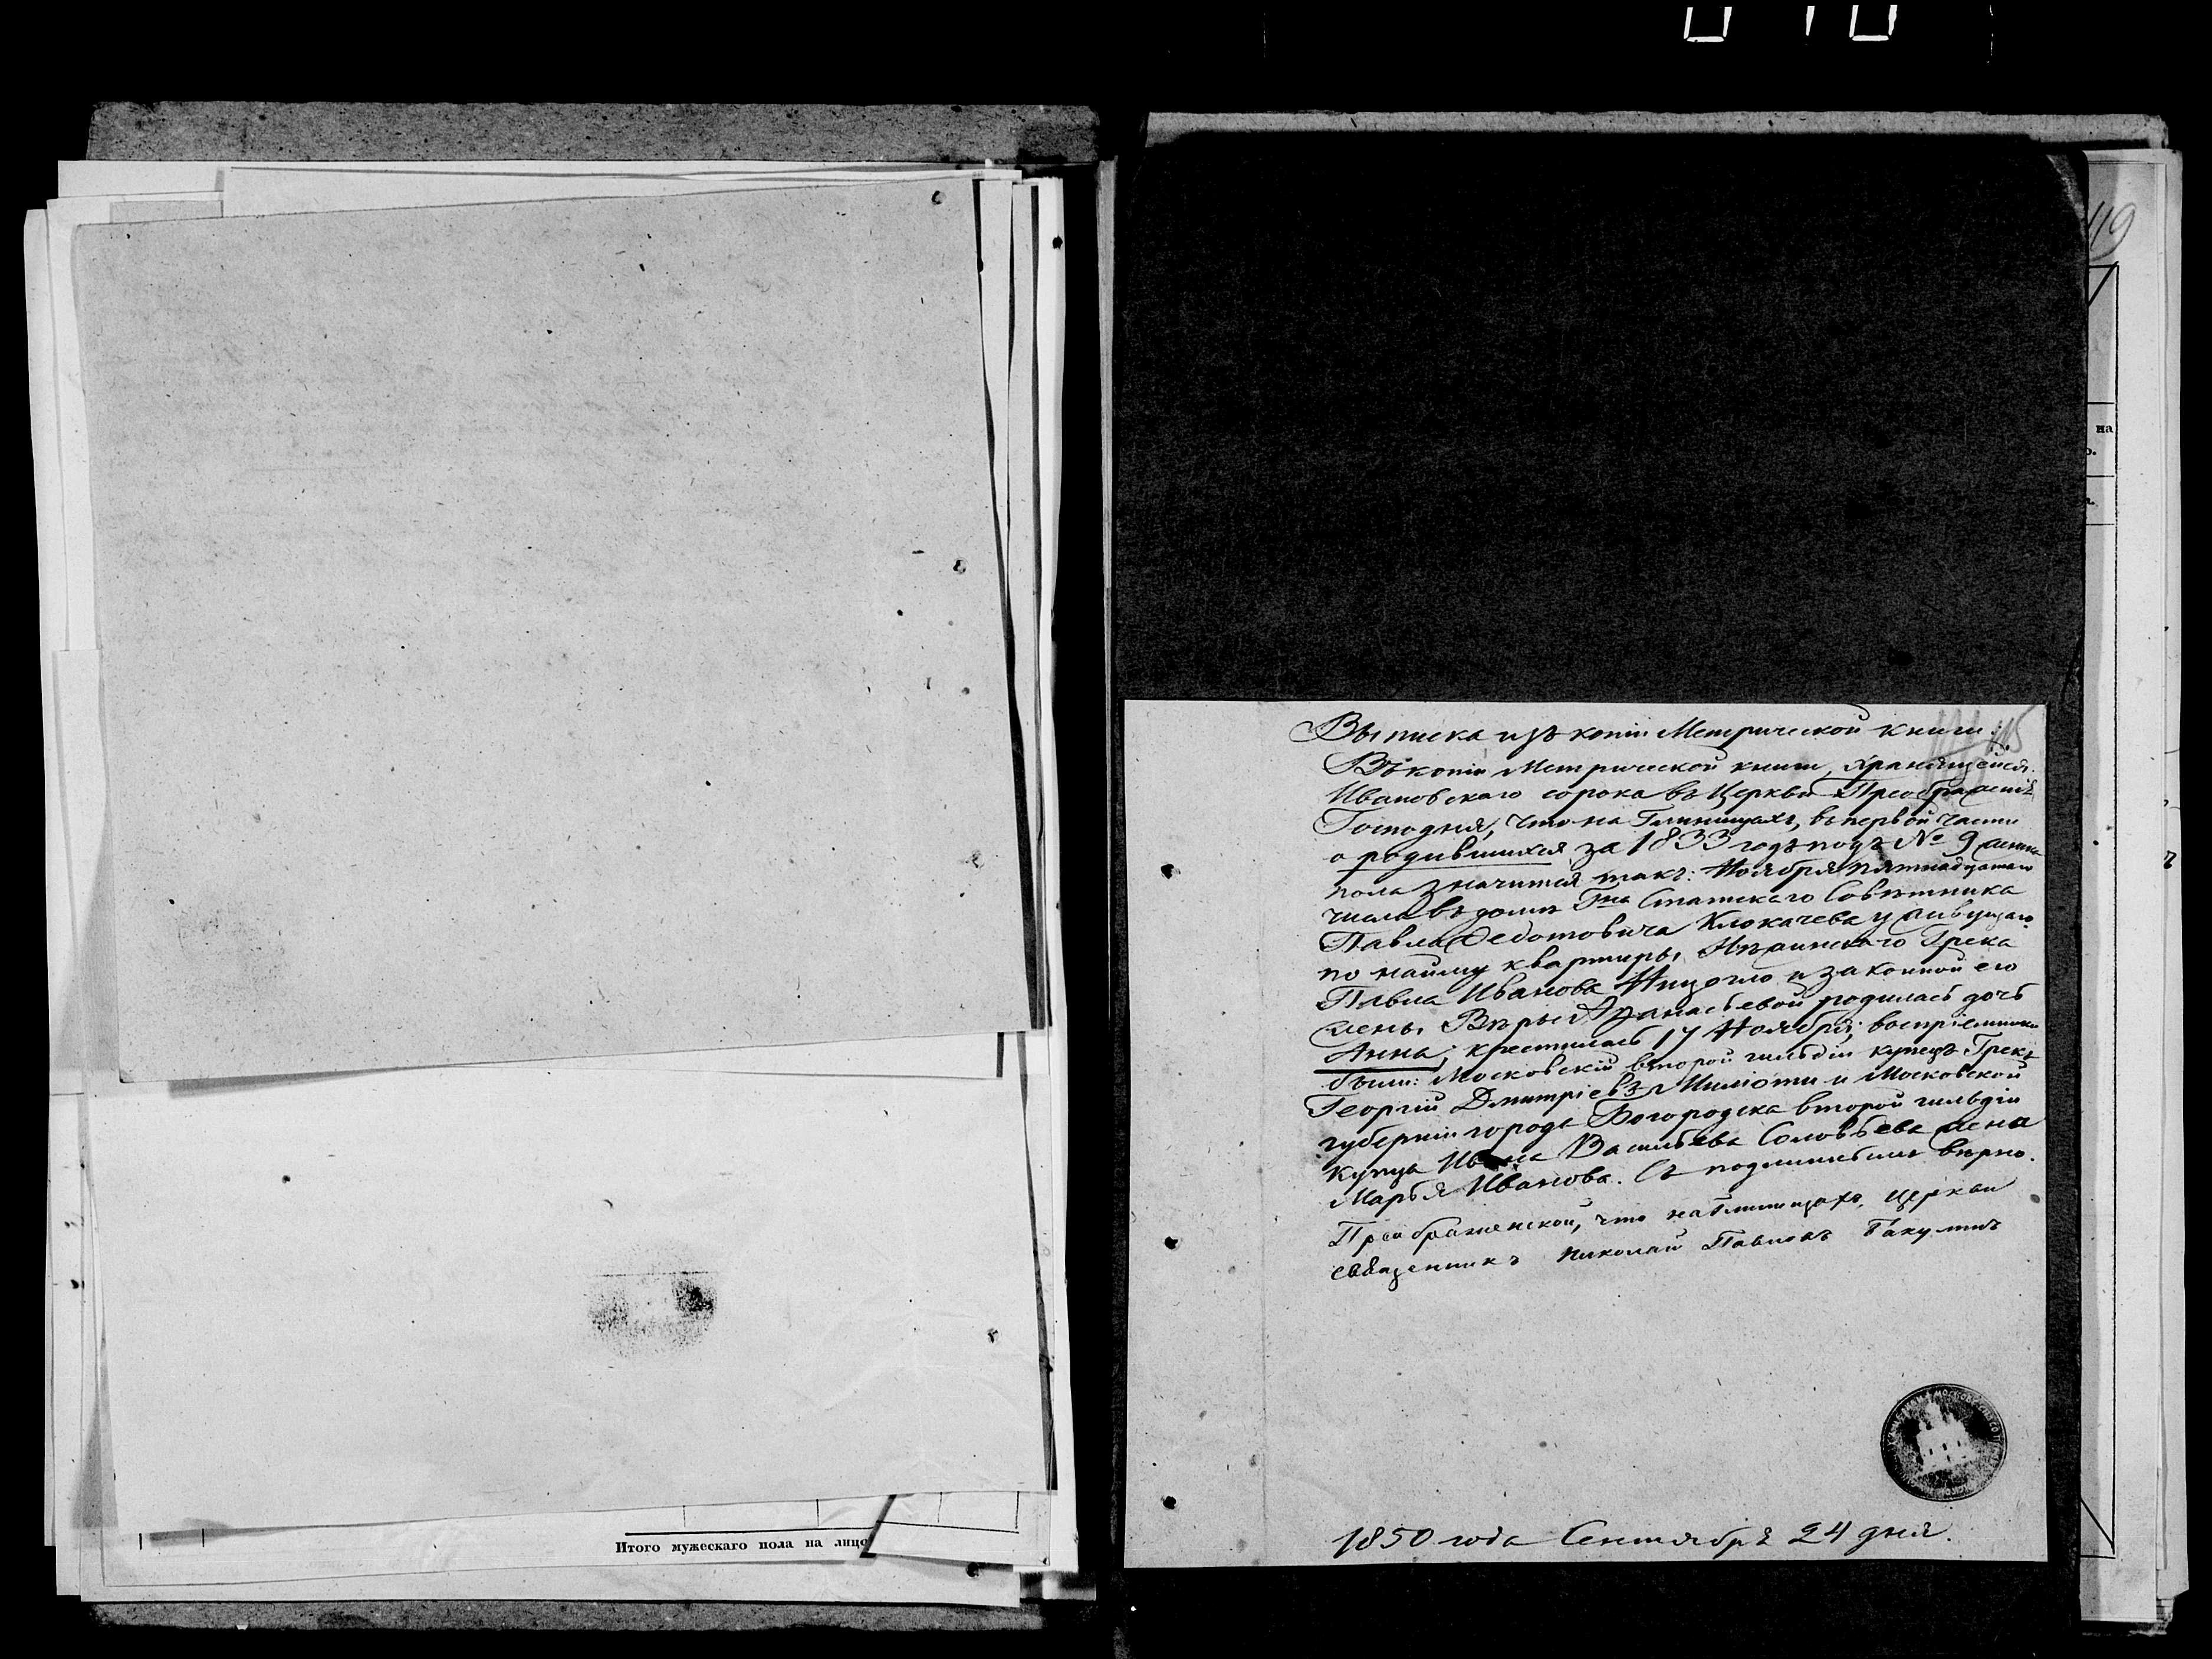 119
на
Итого мужескаго пола на лицо
Выписка изъ копiи Метрической книги.
Въ копiи Метрической книги, хранящейся
Ивановскаго сорока въ Церкви Преображенiя
Господня, что на Глинищахъ, въ первой части
о родившихся за 1833 годъ подъ № 9 женска
пола значится такъ: Ноября пятнадцатаго
числа въ домѣ Гна Статскаго Совѣтника
Павла Федотовича Клокачева у живущаго
по найму квартиры, Нѣжинскаго Грека
Павла Иванова и законной его
жены Вѣры Афанасьевой родилась дочь
Анна; крестилась 17 Ноября; воспрiемники
были: Московскiй второй гильдiи купецъ Грекъ
Георгiй Дмитрiевъ и Московской
губернiи города Богородска второй гильдiи
купца Ивана Васильева Соловьева жена
Марья Иванова. Съ подлиннымъ вѣрно.
Преображенской, что на Глинищахъ, церкви
священникъ Николай Павловъ Бакунинъ
1850 года Сентября 24 дня.